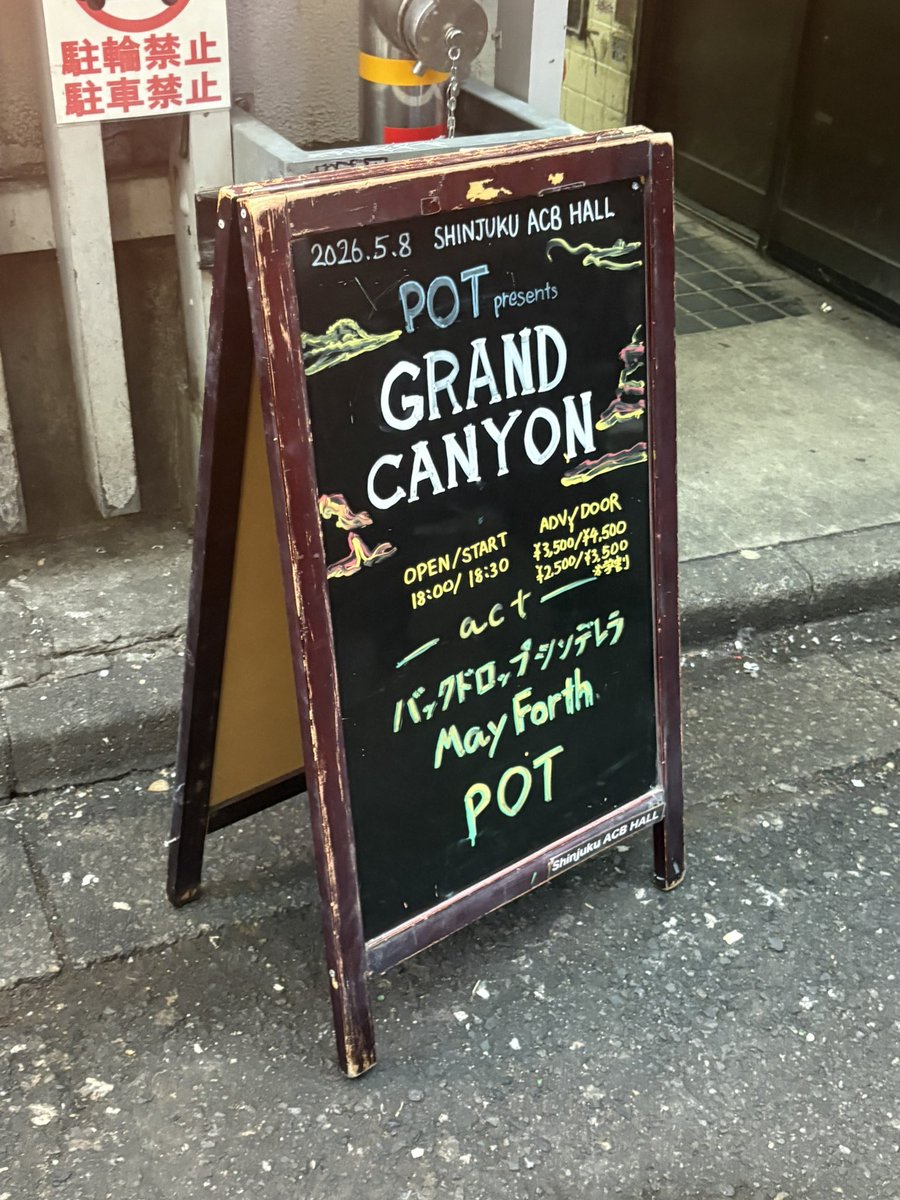 駐輪禁止
駐車禁止
2026.5.8 SHINJUKU ACB HALL
POT presents
GRAND
CANYON
OPEN/START
18:00/18:30
ADV/DOOR
¥3,500/¥4,500
¥2,500/¥3,500
※学割
act
バックドロップシンデレラ
May Forth
POT
Shinjuku ACB HALL